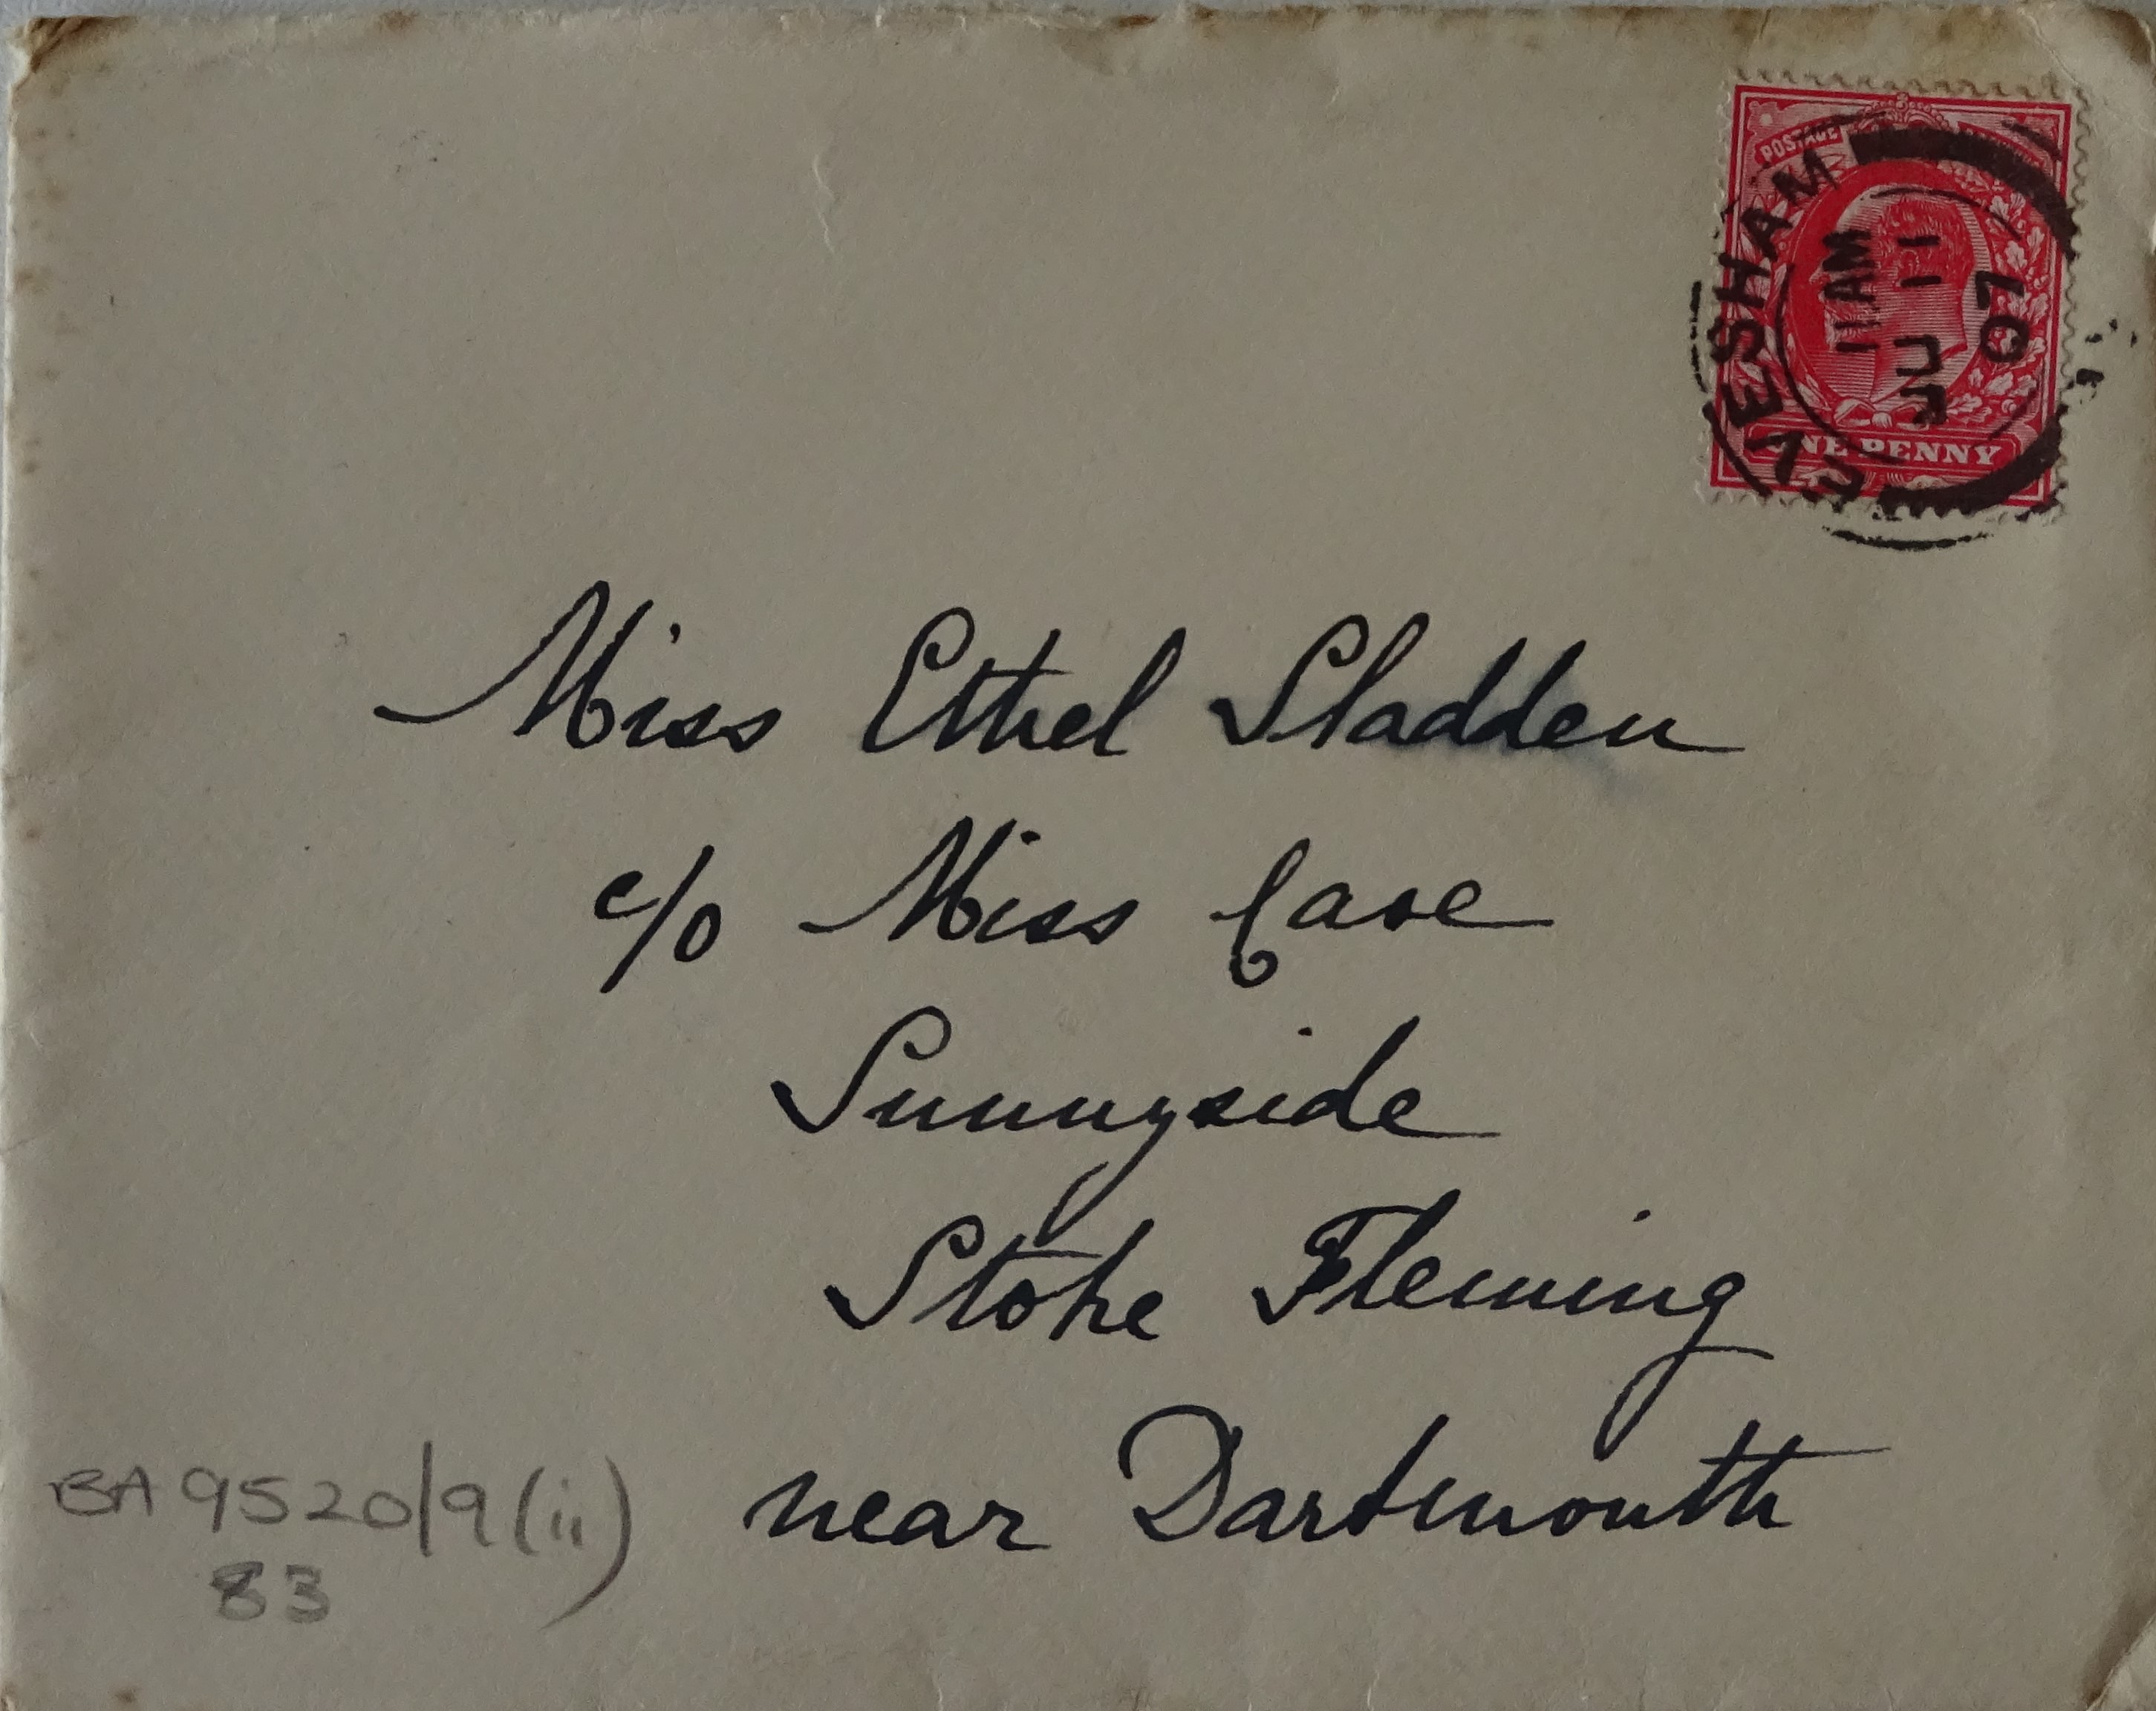 POSTAGE
ONE PENNY
EVESHAM
11 AM
11
07
Miss Ethel Sladden
c/o Miss Case
Sunnyside
Stoke Fleming
near Dartmouth
BA 9520/9(ii)
83